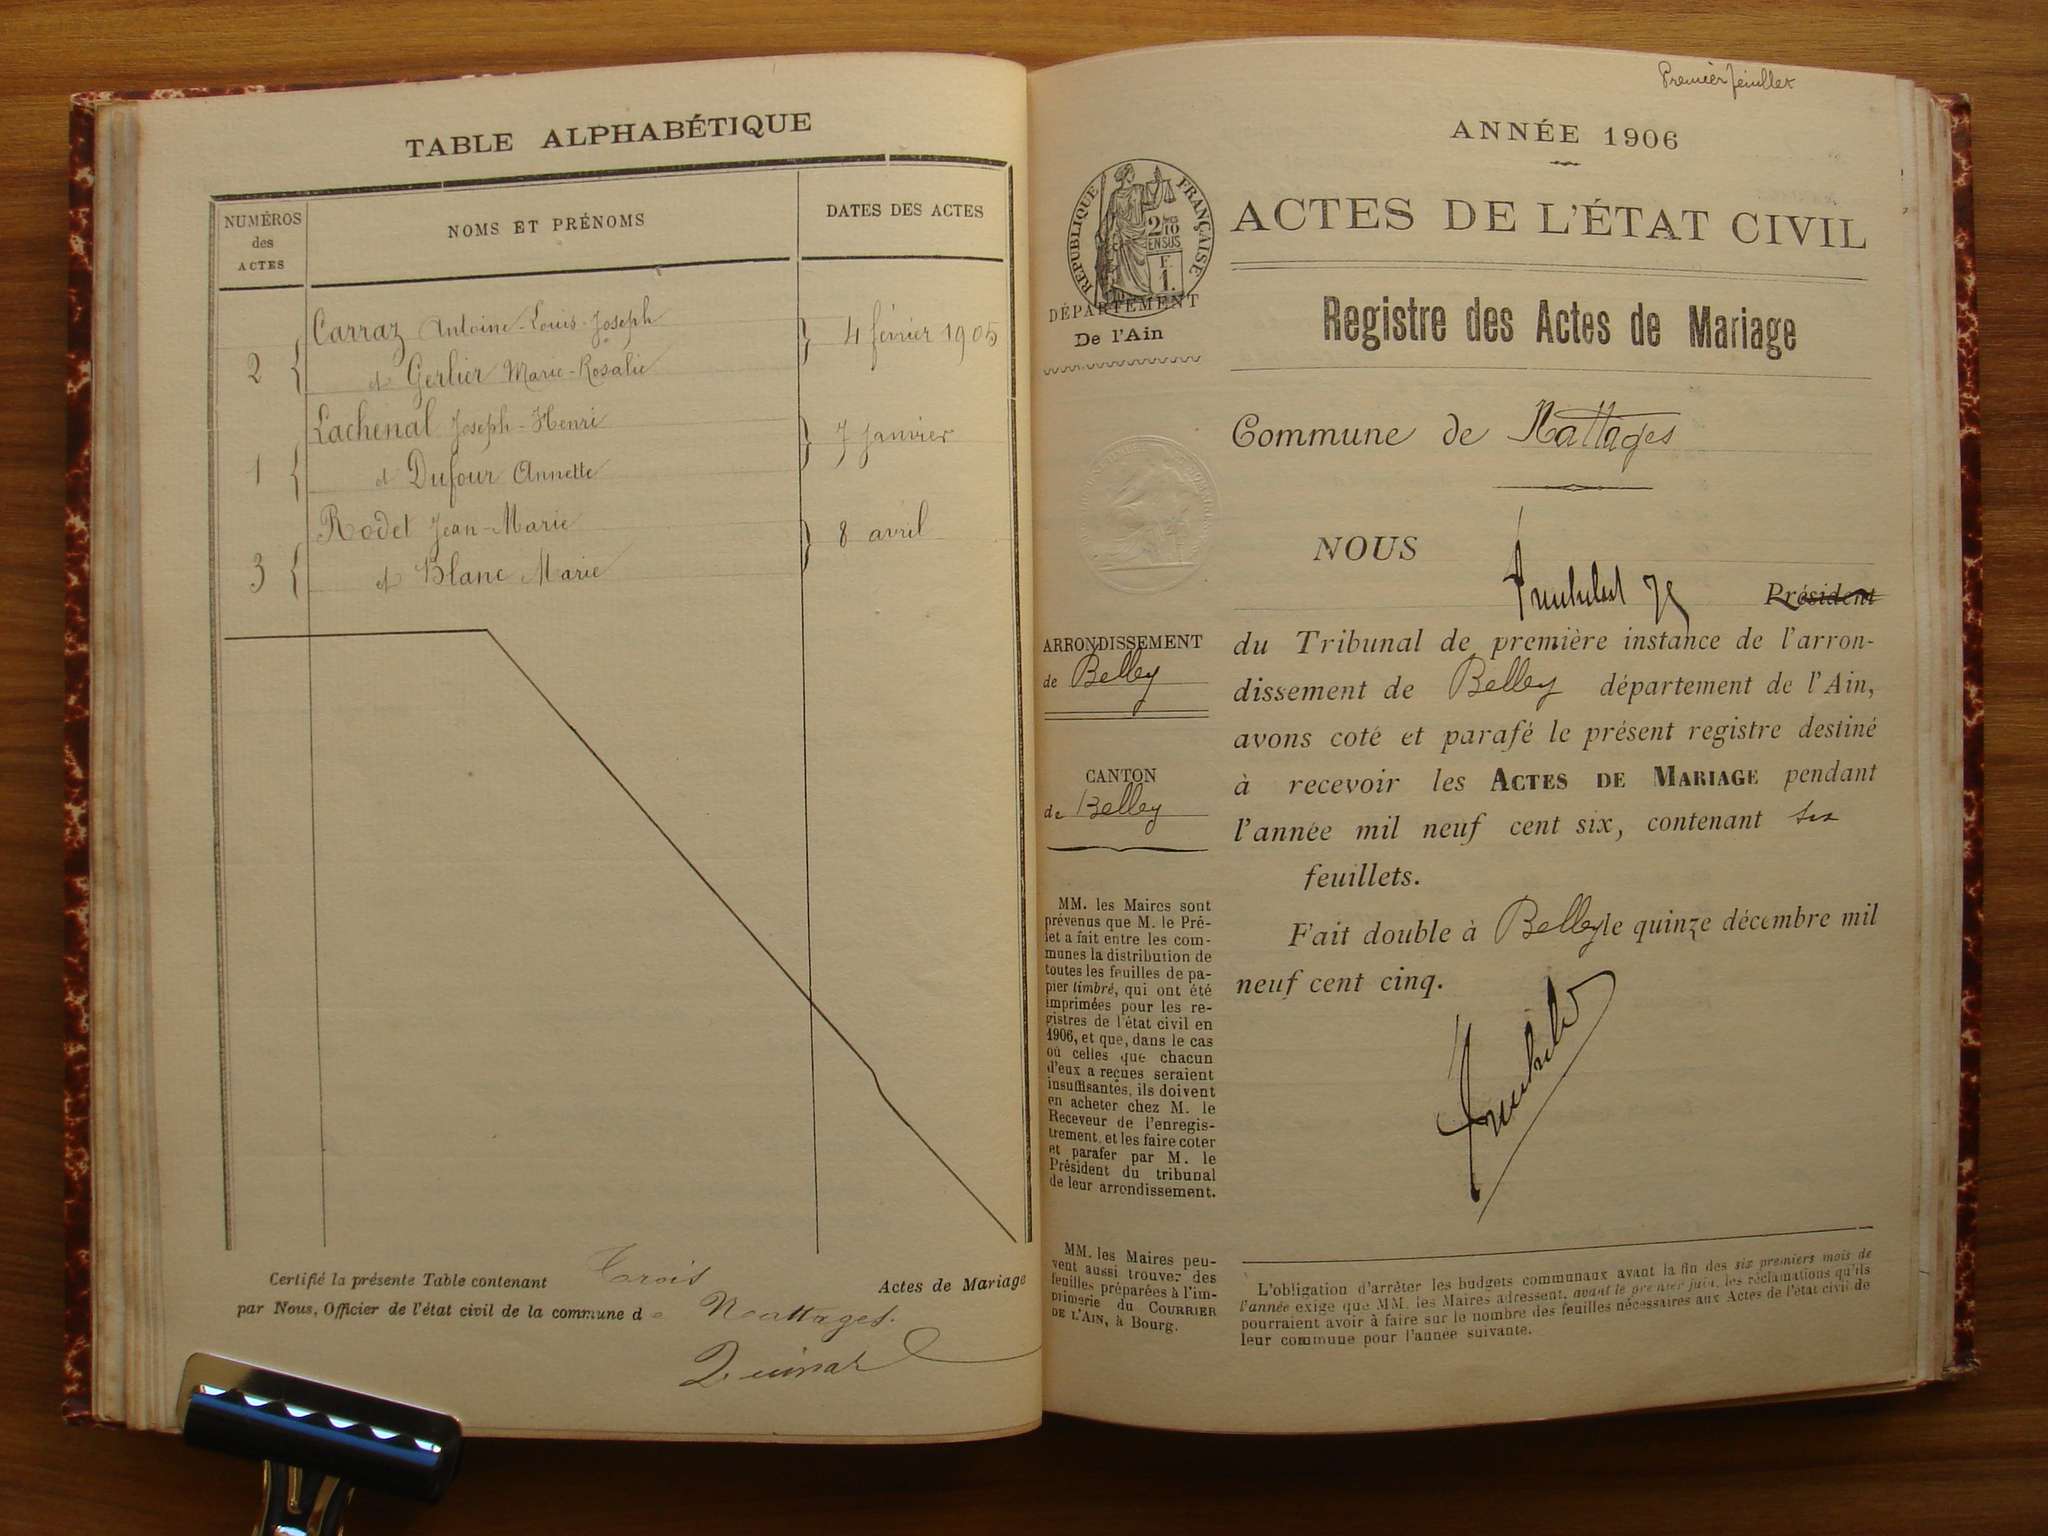 TABLE ALPHABÉTIQUE
NUMÉROS
des
ACTES
NOMS ET PRÉNOMS
DATES DES ACTES
Carraz Antoine-Louis-Joseph
2 et Gerlier Marie-Rosalie
4 février 1905
Lachenal Joseph-Henri
1 et Dufour Annette
7 janvier
Rodet Jean-Marie
3 et Blanc Marie
8 avril
Certifié la présente Table contenant Trois Actes de Mariage
par Nous, Officier de l'état civil de la commune de Nattages.
Premier feuillet
ANNÉE 1906
RÉPUBLIQUE FRANÇAISE
2/10
EN SUS
F.
1.
DÉPARTEMENT
De l'Ain
ACTES DE L'ÉTAT CIVIL
Registre des Actes de Mariage
Commune de Nattages
NOUS
Président
ARRONDISSEMENT
de Belley
CANTON
de Belley
du Tribunal de première instance de l'arron-
dissement de Belley département de l'Ain,
avons coté et parafé le présent registre destiné
à recevoir les ACTES DE MARIAGE pendant
l'année mil neuf cent six, contenant six
feuillets.
Fait double à Belley le quinze décembre mil
neuf cent cinq.
MM. les Maires sont
prévenus que M. le Pré-
fet a fait entre les com-
munes la distribution de
toutes les feuilles de pa-
pier timbré, qui ont été
imprimées pour les re-
gistres de l'état civil en
1906, et que, dans le cas
où celles que chacun
d'eux a reçues seraient
insuffisantes, ils doivent
en acheter chez M. le
Receveur de l'enregis-
trement, et les faire coter
et parafer par M. le
Président du tribunal
de leur arrondissement.
MM. les Maires peu-
vent aussi trouver des
feuilles préparées à l'im-
primerie du COURRIER
DE L'AIN, à Bourg.
L'obligation d'arrêter les budgets communaux avant la fin des six premiers mois de
l'année exige que MM. les Maires adressent, avant le premier juin, les réclamations qu'ils
pourraient avoir à faire sur le nombre des feuilles nécessaires aux Actes de l'état civil de
leur commune pour l'année suivante.